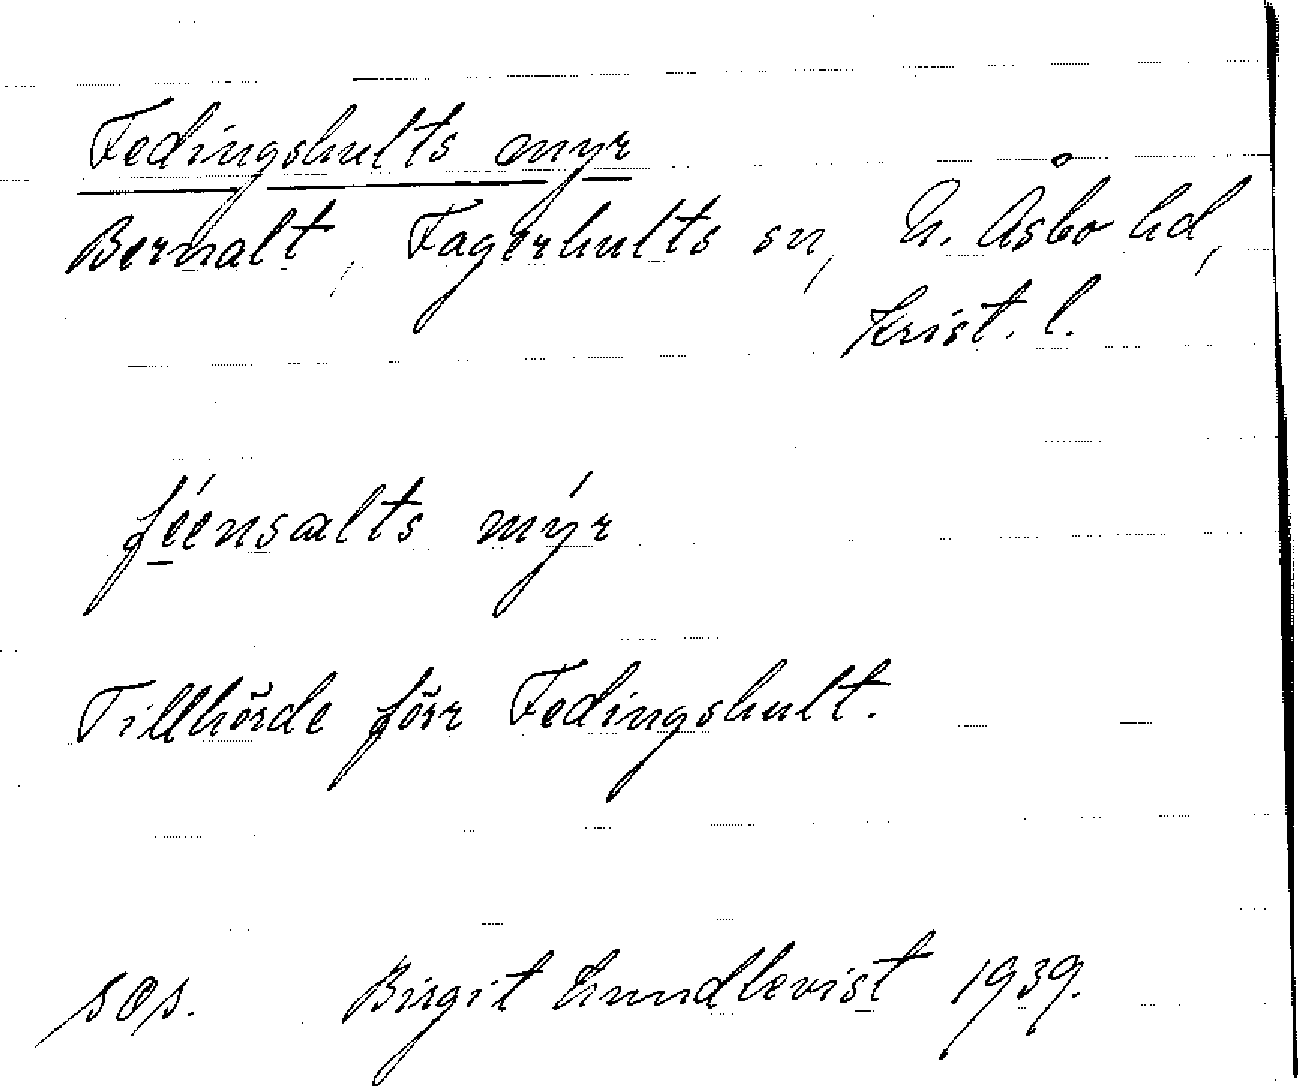 Fedingshults myr
Bernalt, Fagerhults sn, N. Åsbo hd,
Krist. l.
féensalts mýr
Tillhörde förr Fedingshult.
sep. Birgit Lundkvist 1939.